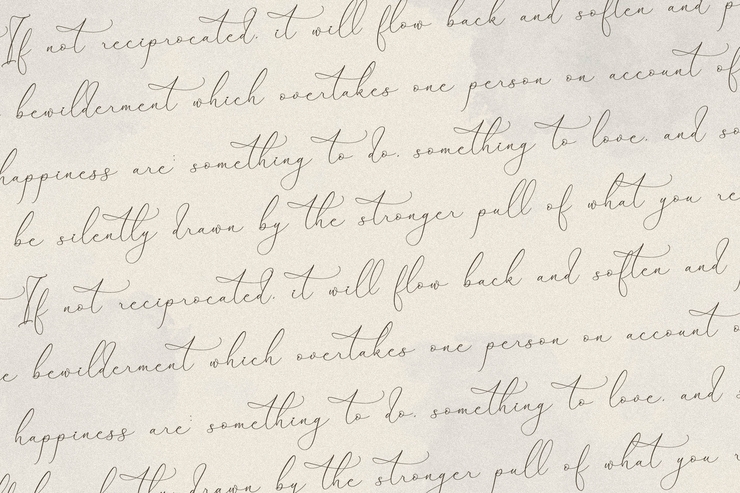 If not reciprocated, it will flow back and soften and
bewilderment which overtakes one person on account of
happiness are: something to do, something to love, and
be silently drawn by the stronger pull of what you
If not reciprocated, it will flow back and soften and
bewilderment which overtakes one person on account
happiness are: something to do, something to love, and
drawn by the stronger pull of what you